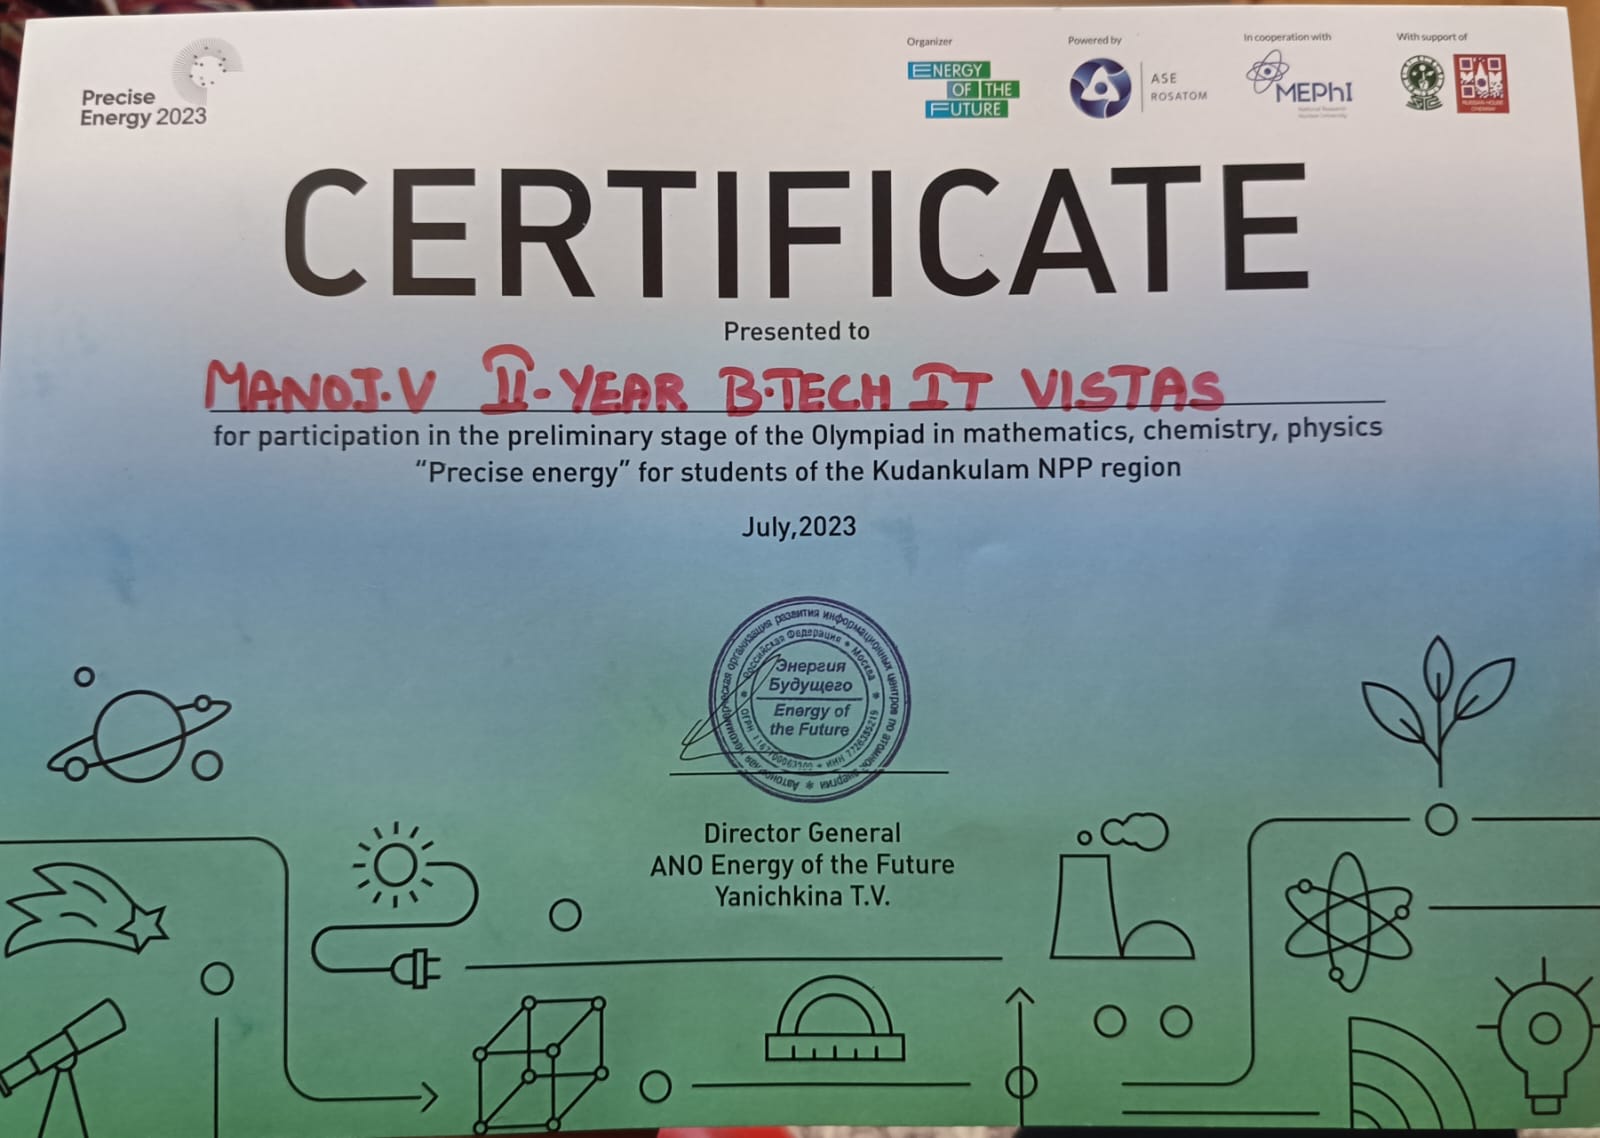 Precise
Energy 2023
Organizer
ENERGY
OF THE
FUTURE
Powered by
ASE
ROSATOM
In cooperation with
MEPhI
National Research
Nuclear University
With support of
RUSSIAN HOUSE
CHENNAI
CERTIFICATE
Presented to
MANOJ.V II-YEAR B.TECH IT VISTAS
for participation in the preliminary stage of the Olympiad in mathematics, chemistry, physics
“Precise energy” for students of the Kudankulam NPP region
July,2023
Автономная некоммерческая организация развития информационных центров по атомной энергии
Российская Федерация * Москва
Энергия
Будущего
Energy of
the Future
Director General
ANO Energy of the Future
Yanichkina T.V.